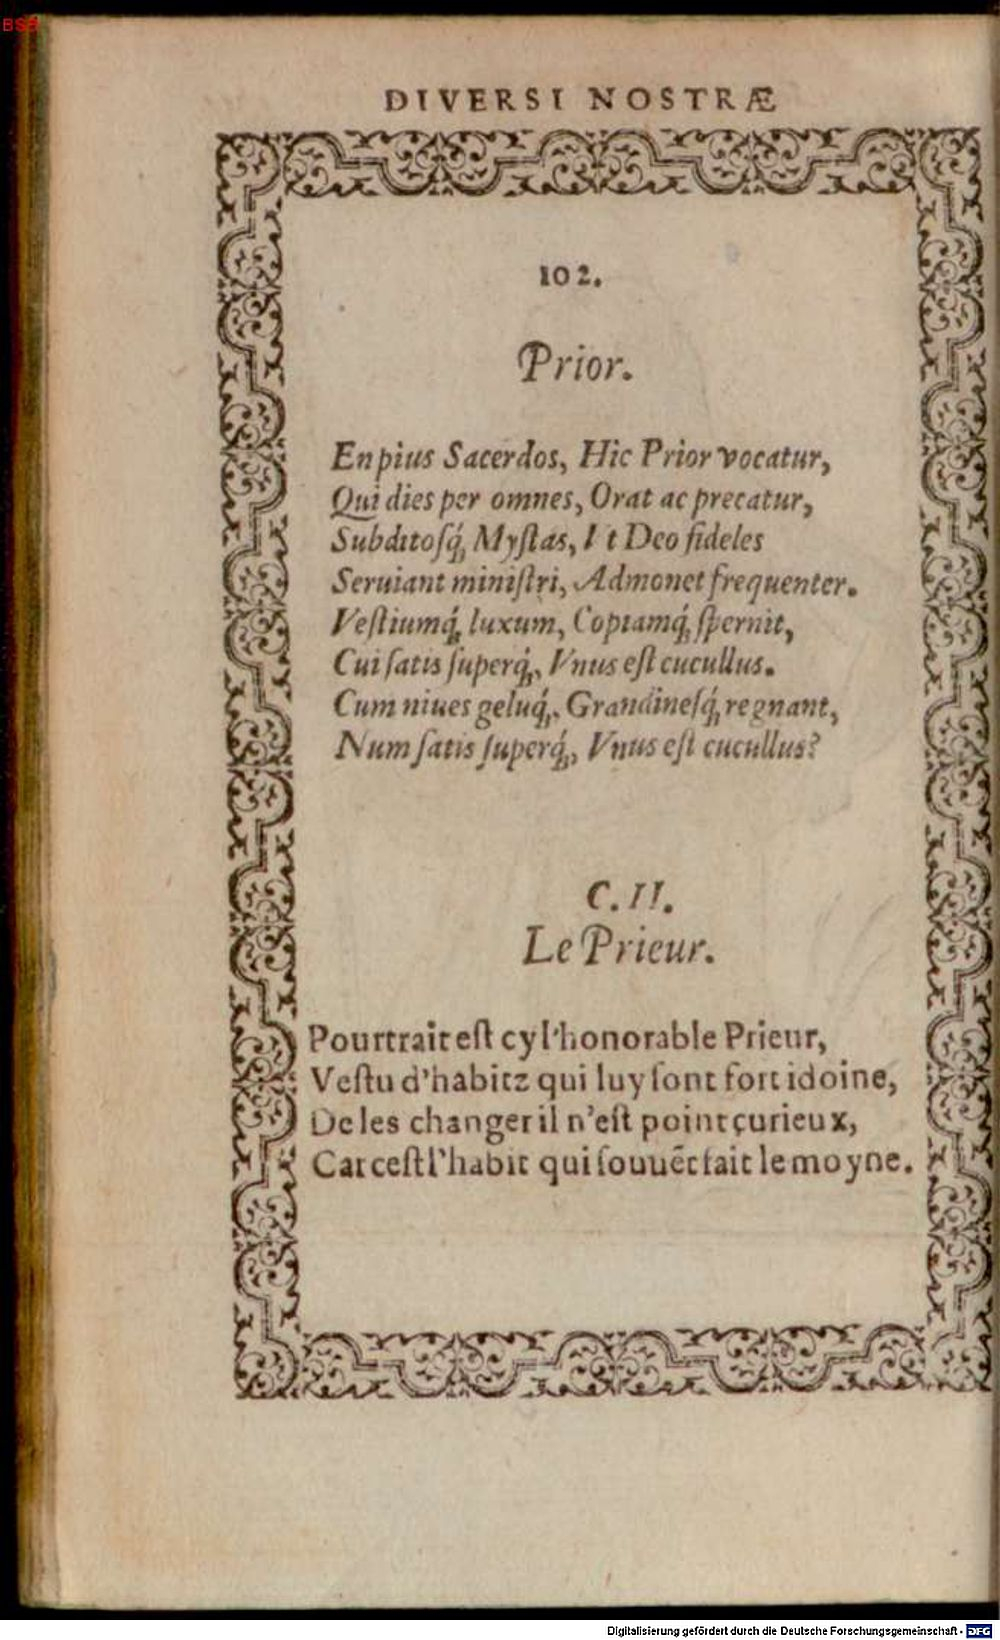 BSB
DIVERSI NOSTRÆ
102.
Prior.
En pius Sacerdos, Hic Prior vocatur,
Qui dies per omnes, Orat ac precatur,
Subditoſq́; Myſtas, Vt Deo fideles
Seruiant miniſtri, Admonet frequenter.
Veſtiumq́; luxum, Copiamq́; ſpernit,
Cui ſatis ſuperq́;, Vnus eſt cucullus.
Cum niues geluq́;, Grandineſq́; regnant,
Num ſatis ſuperq́;, Vnus eſt cucullus?
C. II.
Le Prieur.
Pourtrait eſt cy l'honorable Prieur,
Veſtu d'habitz qui luy ſont fort idoine,
De les changer il n'eſt point çurieux,
Car ceſt l'habit qui ſouuẽt fait le moyne.
Digitalisierung gefördert durch die Deutsche Forschungsgemeinschaft - DFG